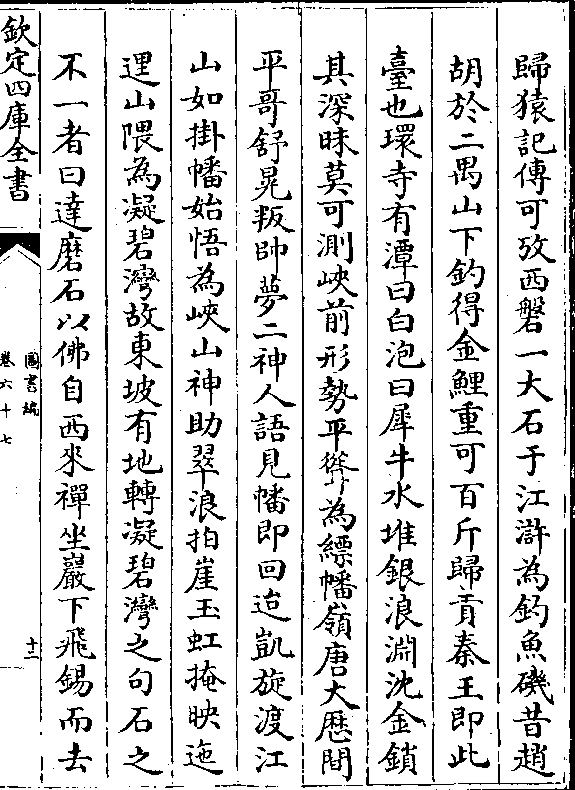 歸猿記傳可攷西磐一大石于江滸為釣魚磯昔趙
胡於二禺山下釣得金鯉重可百斤歸貢秦王即此
臺也環寺有潭曰白泡曰犀牛水堆銀浪淵沈金鎖
其深昧莫可測峽前形勢平聳為縹幡嶺唐大厯間
平哥舒晃叛帥夢二神人語見幡即回迨凱旋渡江
山如掛幡始悟為峽山神助翠浪拍崖玉虹掩映迤
逕山隈為凝碧灣故東坡有地轉凝碧灣之句石之
不一者曰達磨石以佛自西來禪坐巖下飛錫而去
欽定四庫全書
圖書編
卷六十七
十二